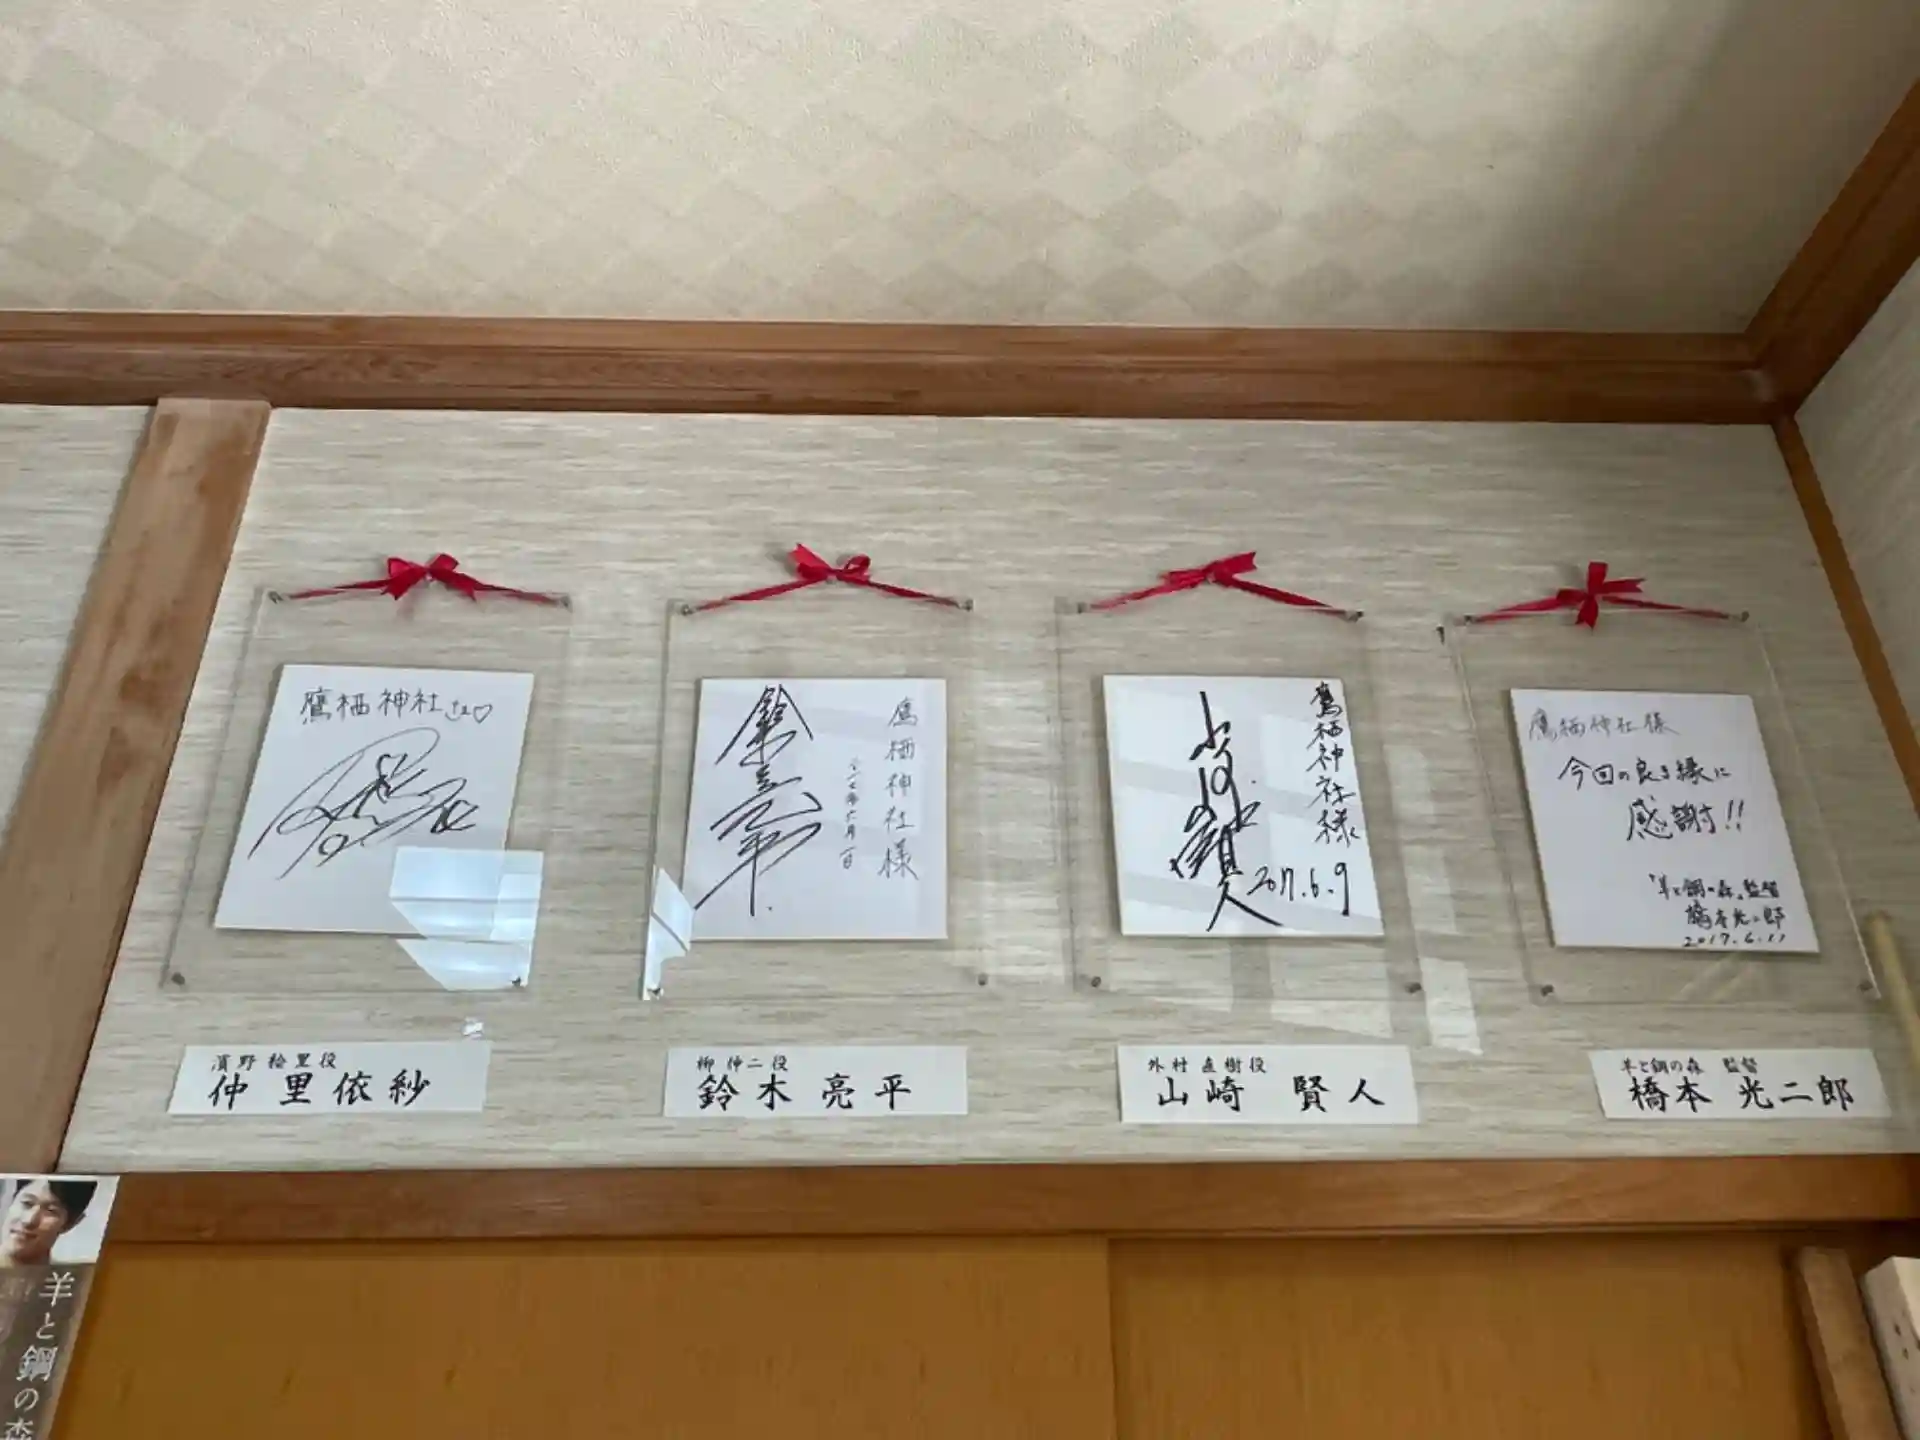 鷹栖神社さん♡
鷹栖神社様
鈴木亮平
鷹栖神社様
山﨑賢人
2017.6.9
鷹栖神社様
今回の良き縁に
感謝!!
「羊と鋼の森」監督
橋本光二郎
2017.6.11
濱野 絵里役
仲 里依紗
柳 伸二役
鈴木 亮平
外村 直樹役
山崎 賢人
羊と鋼の森 監督
橋本 光二郎
羊と鋼の森